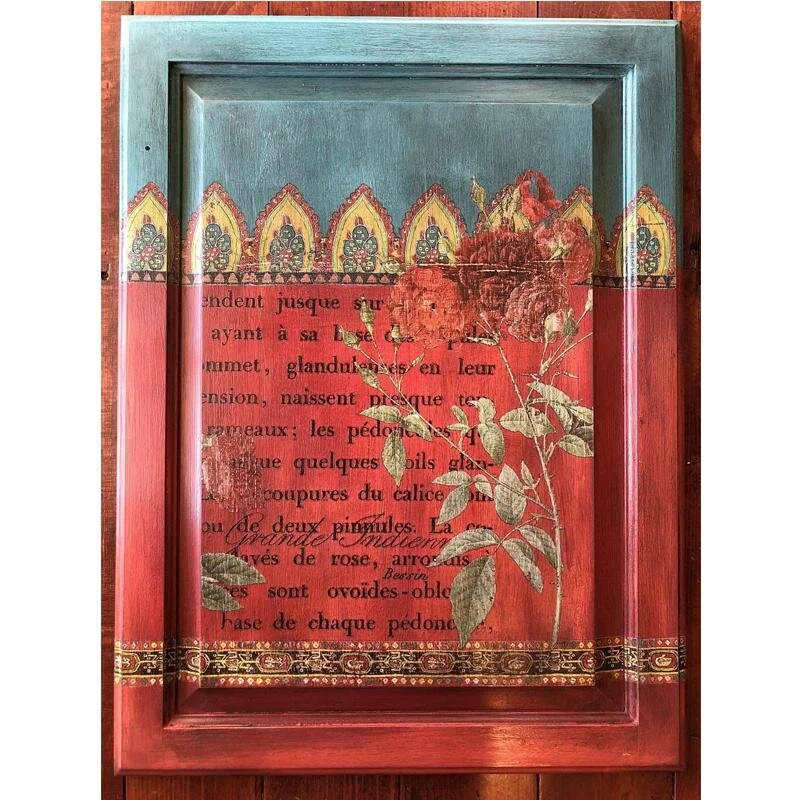 endent jusque sur
ayant à sa base des pales
ommet, glanduleuses en leur
ension, naissent presque
rameaux; les pédoncules
quelques oils glan-
coupures du calice
ou de deux pinnules. La
Grande Indienne
lavés de rose, arrondis à
Bessin
es sont ovoïdes-oblo
base de chaque pédonc ,